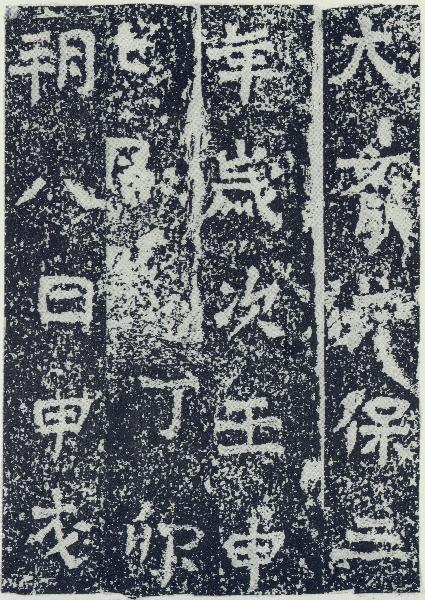 大齊天保三
年歲次壬申
丁卯
朔八日甲戌